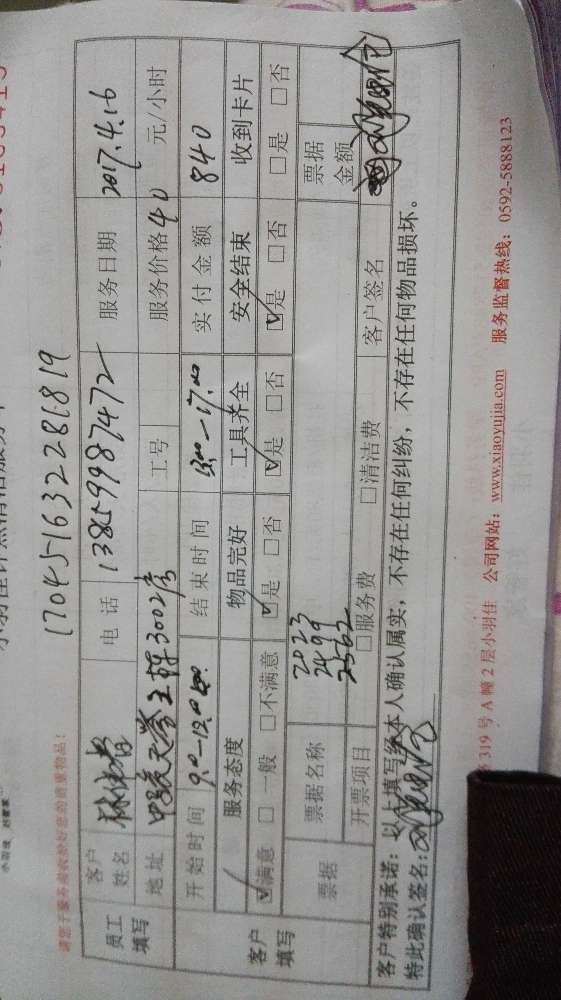 17045163228​1819
请您于服务前收拾好您的贵重物品！
员工填写
客户姓名
电话 13859987472
服务日期 2017.4.16
地址
3002
工号
服务价格 40 元/小时
开始时间 9:00-12:00
结束时间 13:00-17:00
实付金额 840
客户填写
服务态度 物品完好 工具齐全 安全结束 收到卡片
☑满意 □一般 □不满意 ☑是 □否 ☑是 □否 ☑是 □否 □是 □否
票据
票据名称
2023
2499
2562
票据金额
开票项目 □服务费 □清洁费 客户签名
客户特别承诺：以上填写经本人确认属实，不存在任何纠纷，不存在任何物品损坏。
特此确认签名：
319号A幢2层小羽佳 公司网站：www.xiaoyujia.com 服务监督热线：0592-5888123